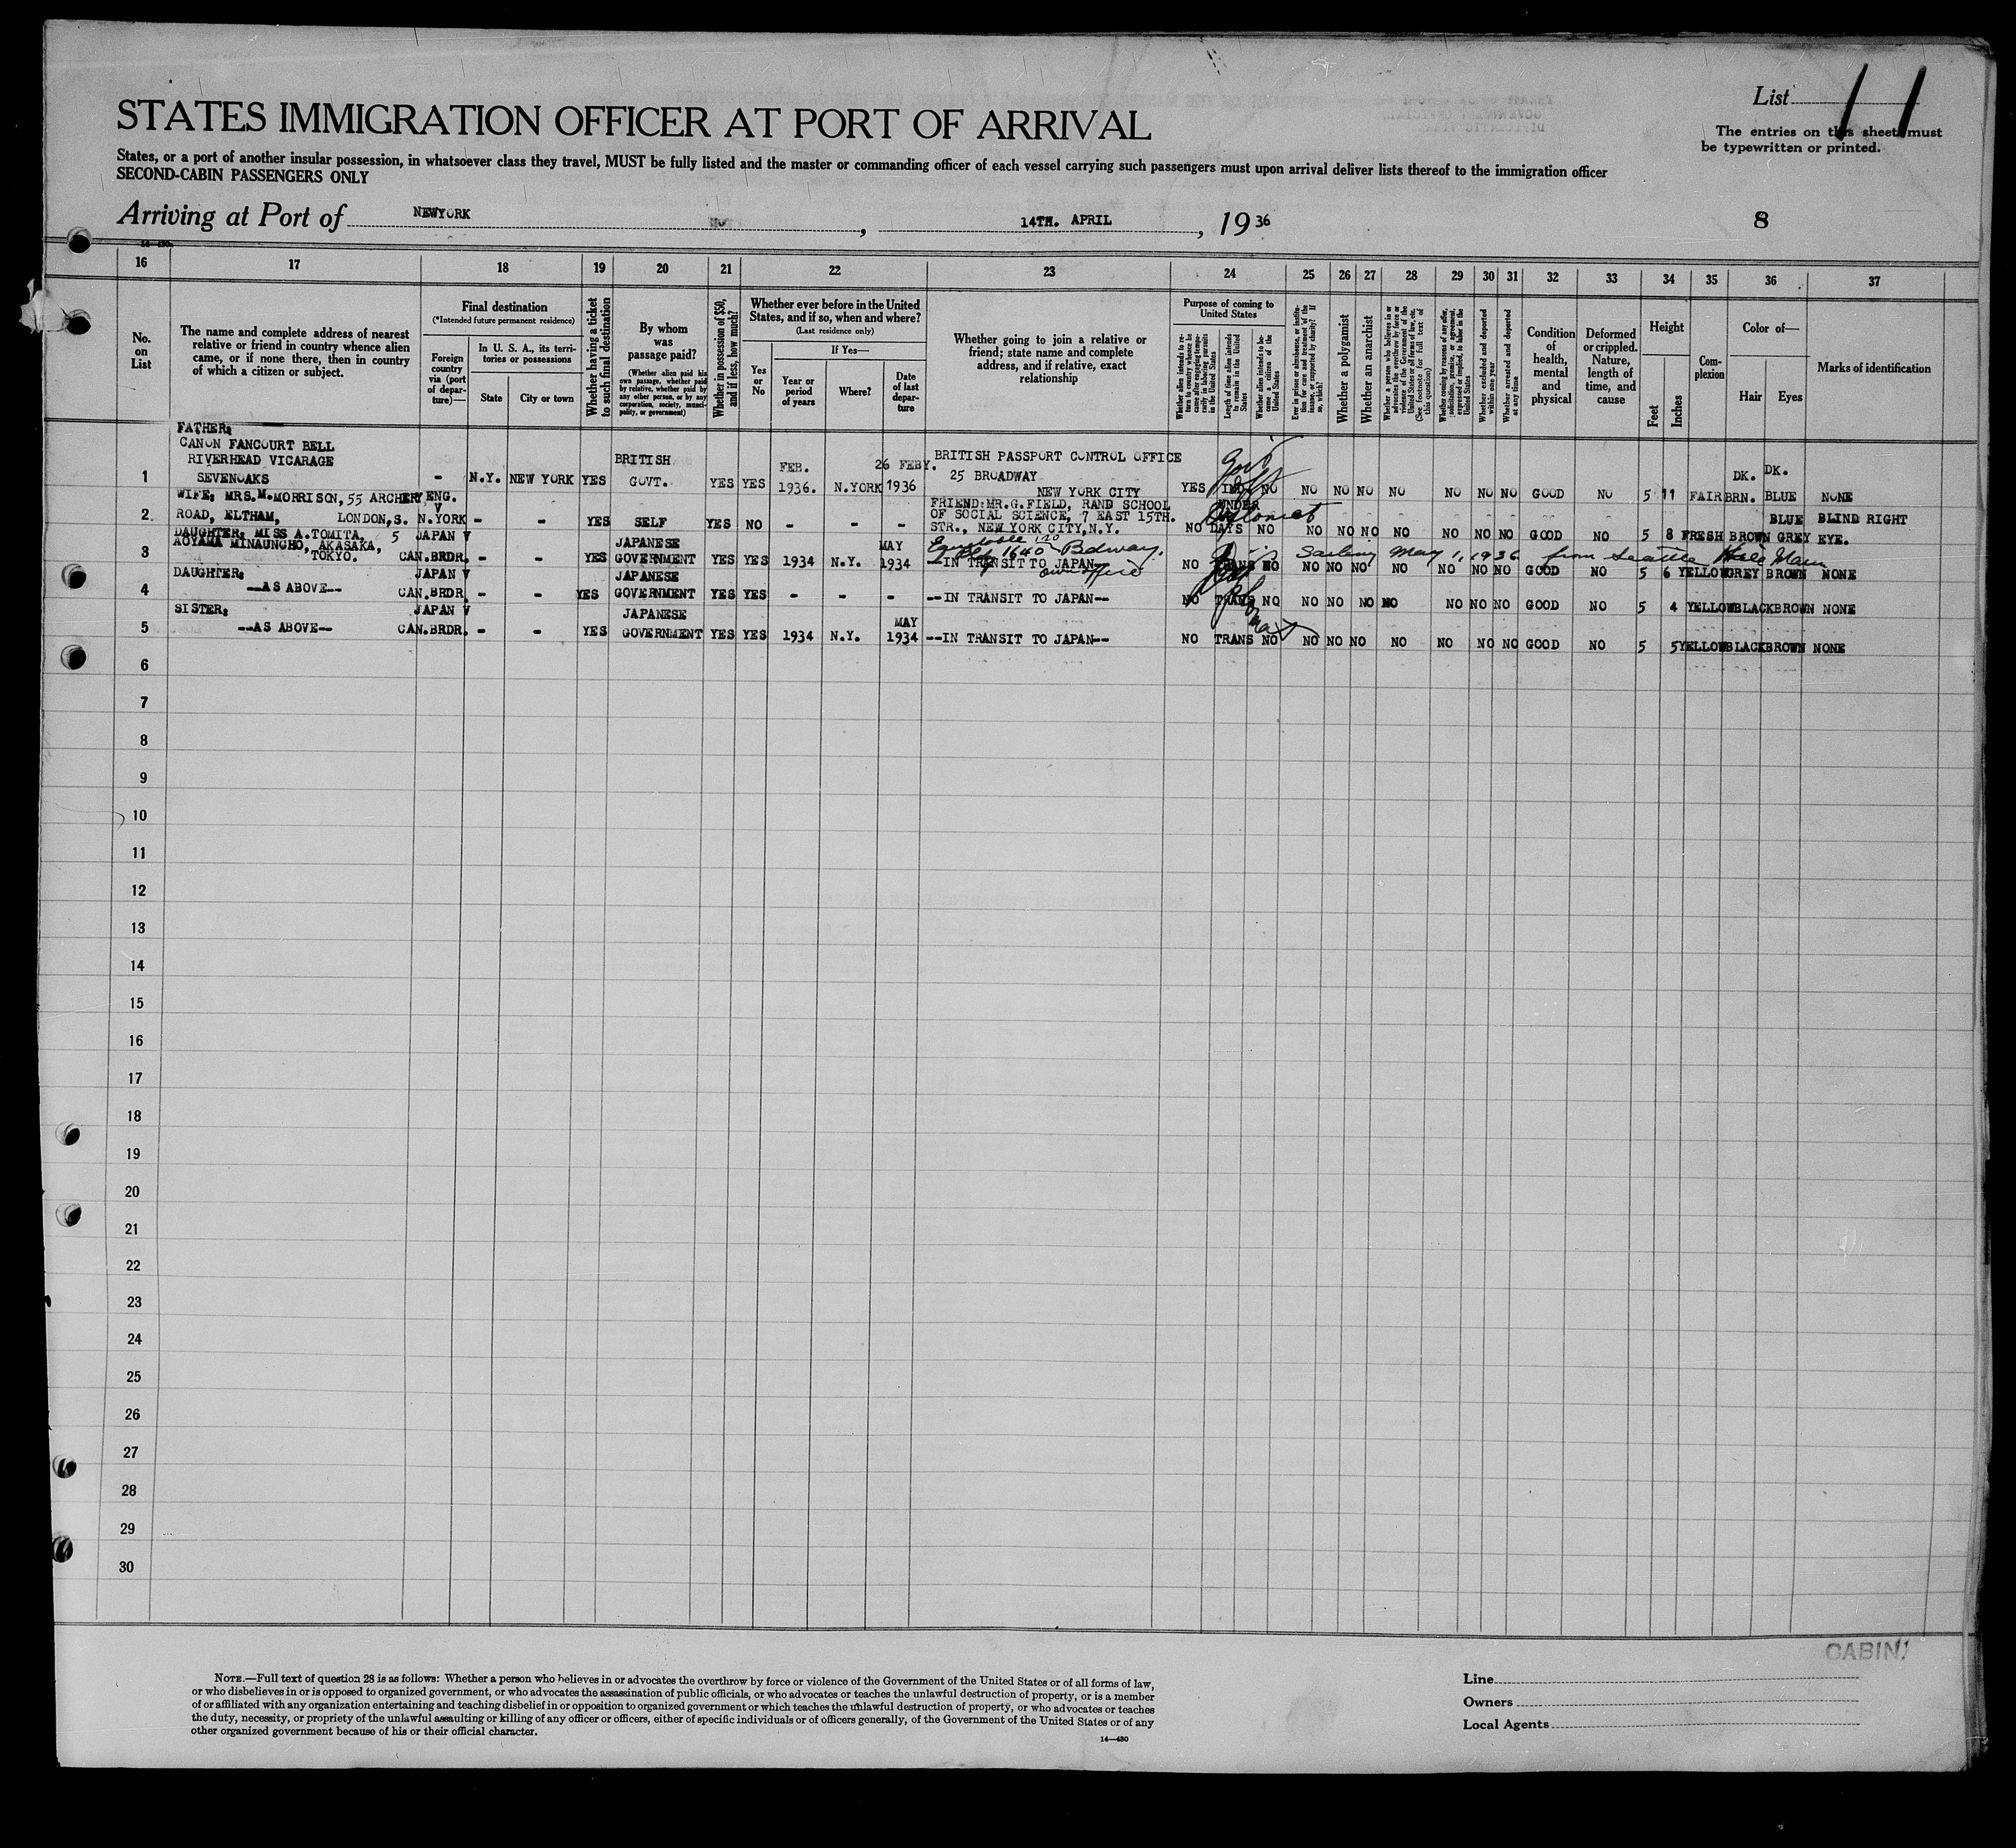 List 11
The entries on this sheet must
be typewritten or printed.
STATES IMMIGRATION OFFICER AT PORT OF ARRIVAL
States, or a port of another insular possession, in whatsoever class they travel, MUST be fully listed and the master or commanding officer of each vessel carrying such passengers must upon arrival deliver lists thereof to the immigration officer
SECOND-CABIN PASSENGERS ONLY
Arriving at Port of NEWYORK, 14TH. APRIL, 1936 8
16 17 18 19 20 21 22 23 24 25 26 27 28 29 30 31 32 33 34 35 36 37
No. on List
The name and complete address of nearest
relative or friend in country whence alien
came, or if none there, then in country
of which a citizen or subject.
Final destination
(*Intended future permanent residence)
Foreign country via (port of departure)—
In U. S. A., its territories or possessions
State
City or town
Whether having a ticket to such final destination
By whom was passage paid?
(Whether alien paid his own passage, whether paid by relative, whether paid by any other person, or by any corporation, society, municipality, or government)
Whether in possession of $50, and if less, how much?
Whether ever before in the United States, and if so, when and where?
(Last residence only)
Yes or No
If Yes—
Year or period of years
Where?
Date of last departure
Whether going to join a relative or
friend; state name and complete
address, and if relative, exact
relationship
Purpose of coming to United States
Whether alien intends to return to country whence he came after engaging temporarily in laboring pursuits in the United States
Length of time alien intends to remain in the United States
Whether alien intends to become a citizen of the United States
Ever in prison or almshouse, or institution for care and treatment of the insane, or supported by charity? If so, which?
Whether a polygamist
Whether an anarchist
Whether a person who believes in or advocates the overthrow by force or violence of the Government of the United States or all forms of law, etc. (See footnote for full text of this question)
Whether coming by reasons of any offer, solicitation, promise, or agreement, expressed or implied, to labor in the United States
Whether excluded and deported within one year
Whether arrested and deported at any time
Condition of health, mental and physical
Deformed or crippled. Nature, length of time, and cause
Height
Feet
Inches
Complexion
Color of—
Hair
Eyes
Marks of identification
1 FATHER:
CANON FANCOURT BELL
RIVERHEAD VICARAGE
SEVENOAKS - N.Y. NEW YORK YES BRITISH GOVT. YES YES FEB. 1936. N.YORK 26 FEBY. 1936 BRITISH PASSPORT CONTROL OFFICE
25 BROADWAY
NEW YORK CITY YES IND NO NO NO NO NO NO NO NO GOOD NO 5 11 FAIR DK. BRN. DK. BLUE NONE
Govt
2 WIFE: MRS.M.MORRISON, 55 ARCHERY
ROAD, ELTHAM, LONDON,S. ENG. V N.YORK - - YES SELF YES NO - - - FRIEND:MR.G.FIELD, RAND SCHOOL
OF SOCIAL SCIENCE, 7 EAST 15TH.
STR., NEW YORK CITY,N.Y. NO UNDER DAYS NO NO NO NO NO NO NO NO GOOD NO 5 8 FRESH BROWN BLUE GREY BLIND RIGHT EYE.
Diplomat
3 DAUGHTER: MISS A.TOMITA, 5
AOYAMA MINAUNCHO, AKASAKA,
TOKYO. JAPAN V CAN.BRDR. - - YES JAPANESE GOVERNMENT YES YES 1934 N.Y. MAY 1934 --IN TRANSIT TO JAPAN-- NO TRANS NO NO NO NO NO NO NO NO GOOD NO 5 6 YELLOW GREY BROWN NONE
Equitable 120 Bdway.
1640
own office
Sailing May 1, 1936 from Seattle
4 DAUGHTER:
--AS ABOVE-- JAPAN V CAN.BRDR. - - YES JAPANESE GOVERNMENT YES YES - - - --IN TRANSIT TO JAPAN-- NO TRANS NO NO NO NO NO NO NO NO GOOD NO 5 4 YELLOW BLACK BROWN NONE
5 SISTER:
--AS ABOVE-- JAPAN V CAN.BRDR. - - YES JAPANESE GOVERNMENT YES YES 1934 N.Y. MAY 1934 --IN TRANSIT TO JAPAN-- NO TRANS NO NO NO NO NO NO NO NO GOOD NO 5 5 YELLOW BLACK BROWN NONE
6
7
8
9
10
11
12
13
14
15
16
17
18
19
20
21
22
23
24
25
26
27
28
29
30
CABIN
NOTE.—Full text of question 28 is as follows: Whether a person who believes in or advocates the overthrow by force or violence of the Government of the United States or of all forms of law,
or who disbelieves in or is opposed to organized government, or who advocates the assassination of public officials, or who advocates or teaches the unlawful destruction of property, or is a member
of or affiliated with any organization entertaining and teaching disbelief in or opposition to organized government or which teaches the unlawful destruction of property, or who advocates or teaches
the duty, necessity, or propriety of the unlawful assaulting or killing of any officer or officers, either of specific individuals or of officers generally, of the Government of the United States or of any
other organized government because of his or their official character.
14—430
Line
Owners
Local Agents